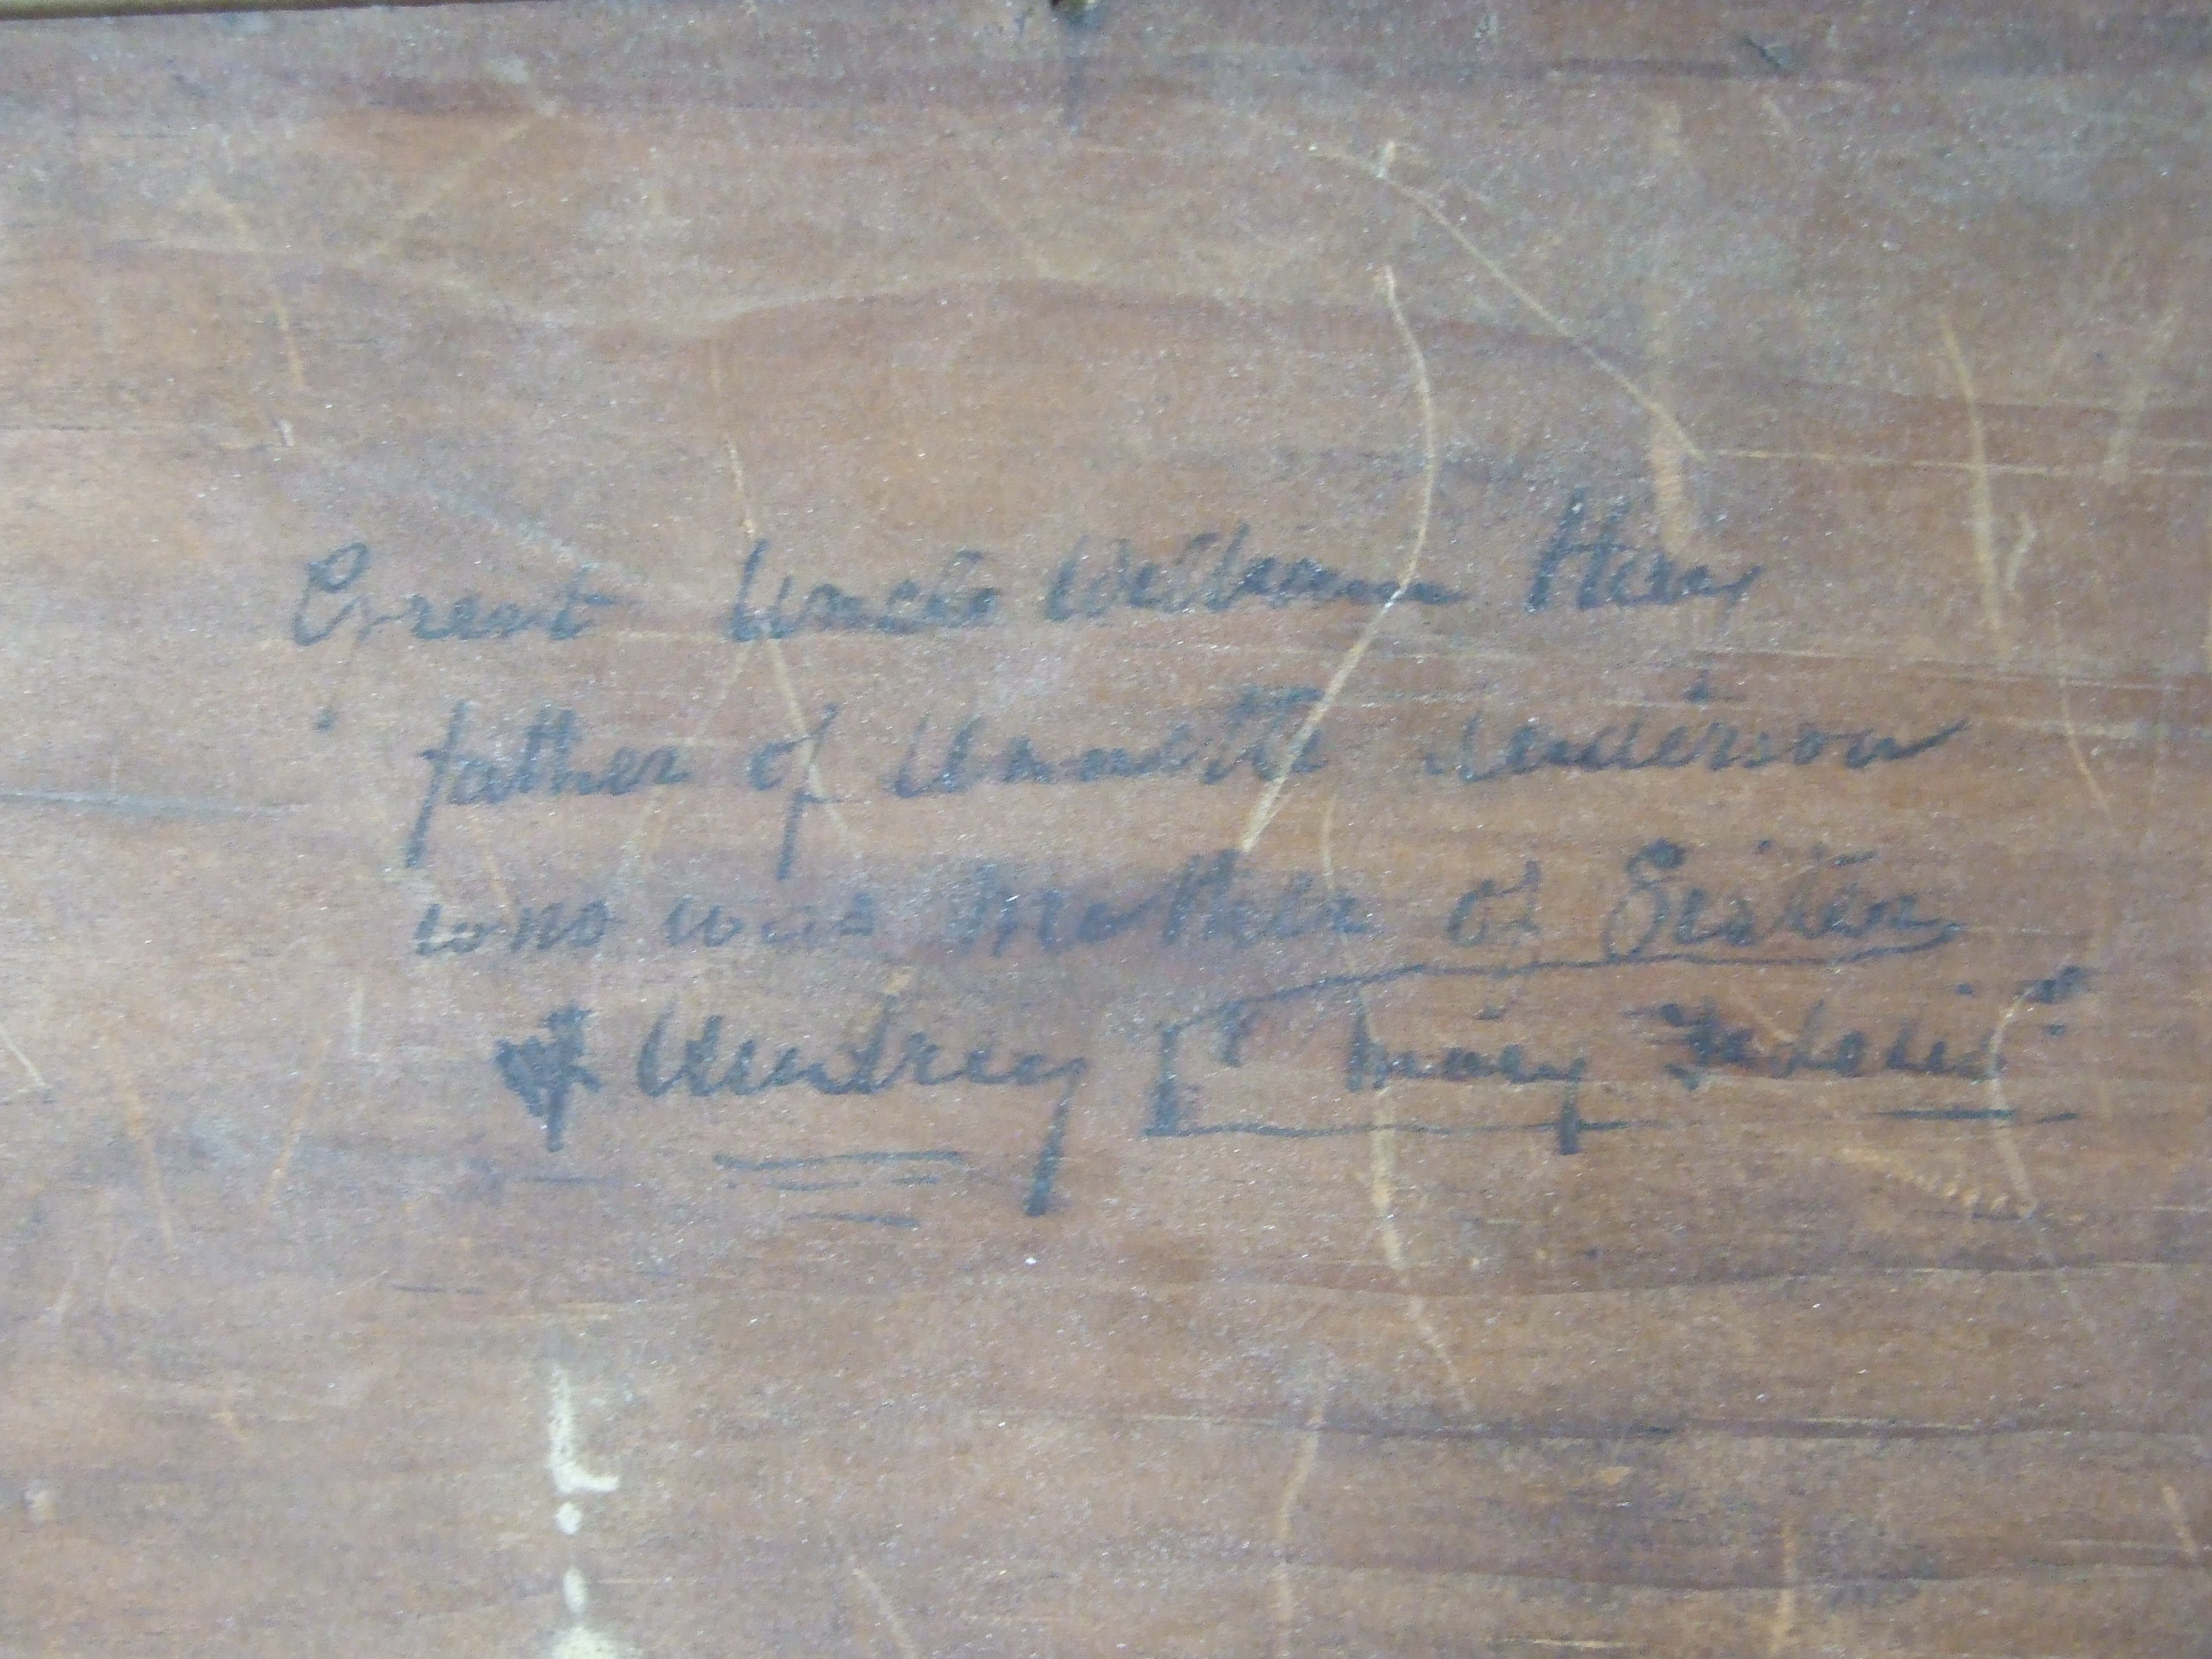 Great Uncle William Hay
father of Annette Anderson
who was Mother of Sister
& Audrey Mary